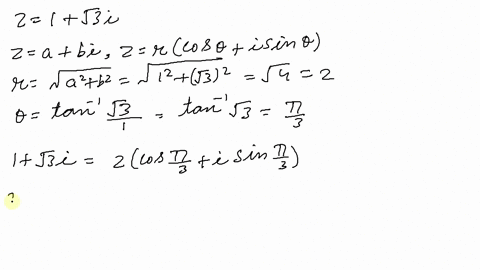 z = 1 + √3 i
z = a + bi, z = r (cos θ + i sin θ)
r = √a²+b² = √1²+(√3)² = √4 = 2
θ = tan⁻¹ √3/1 = tan⁻¹ √3 = π/3
1 + √3 i = 2 (cos π/3 + i sin π/3)